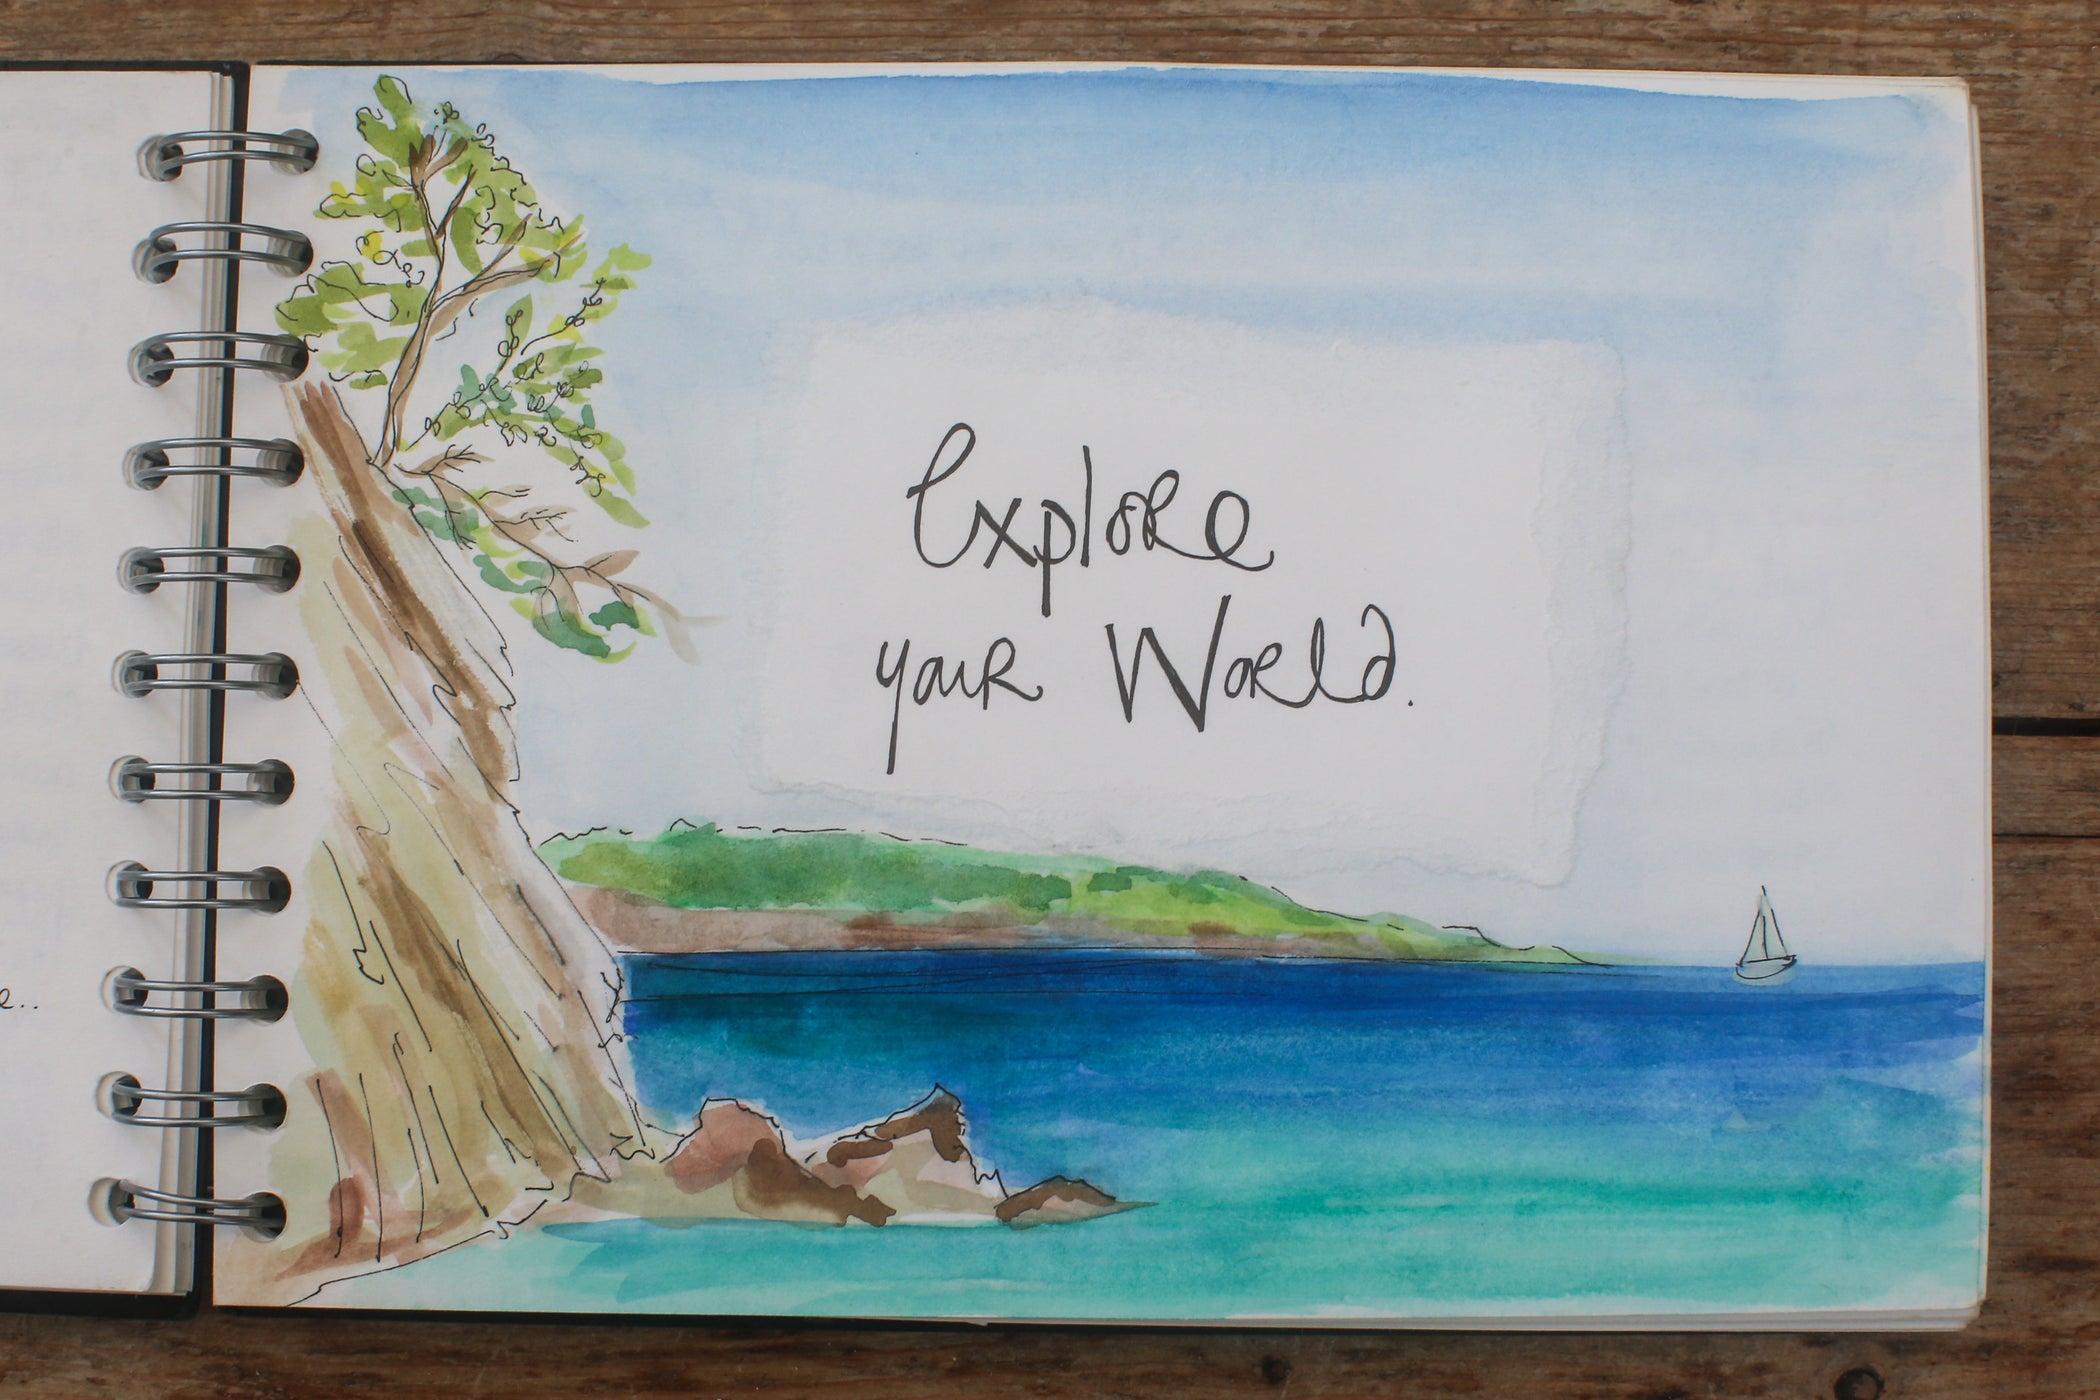 Explore
your World.